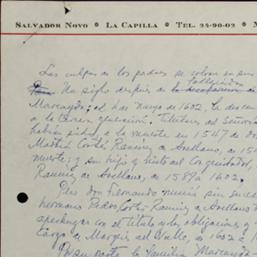 SALVADOR NOVO • LA CAPILLA • TEL. 24-90-02 •
Las culpas de los padres se cobran en sus
fallecido
Un siglo después de
Marcaida; el de Marzo de 1602, la descen
a la tercera generación. Titular del Señorío
habían sido, a la muerte en 1547 de don
Martín Cortés Ramírez de Arellano, en 15
muerte; y su hijo y nieto del Conquistador,
Ramírez de Arellano, en 1589 a 1602.
Pues don Fernando murió sin suce
hermano Pedro Cortés Ramírez de Arellano
apechugar con el título y las obligaciones y
cargo de Marqués del Valle, en 1602 a 1
Por su parte la familia Marcaida